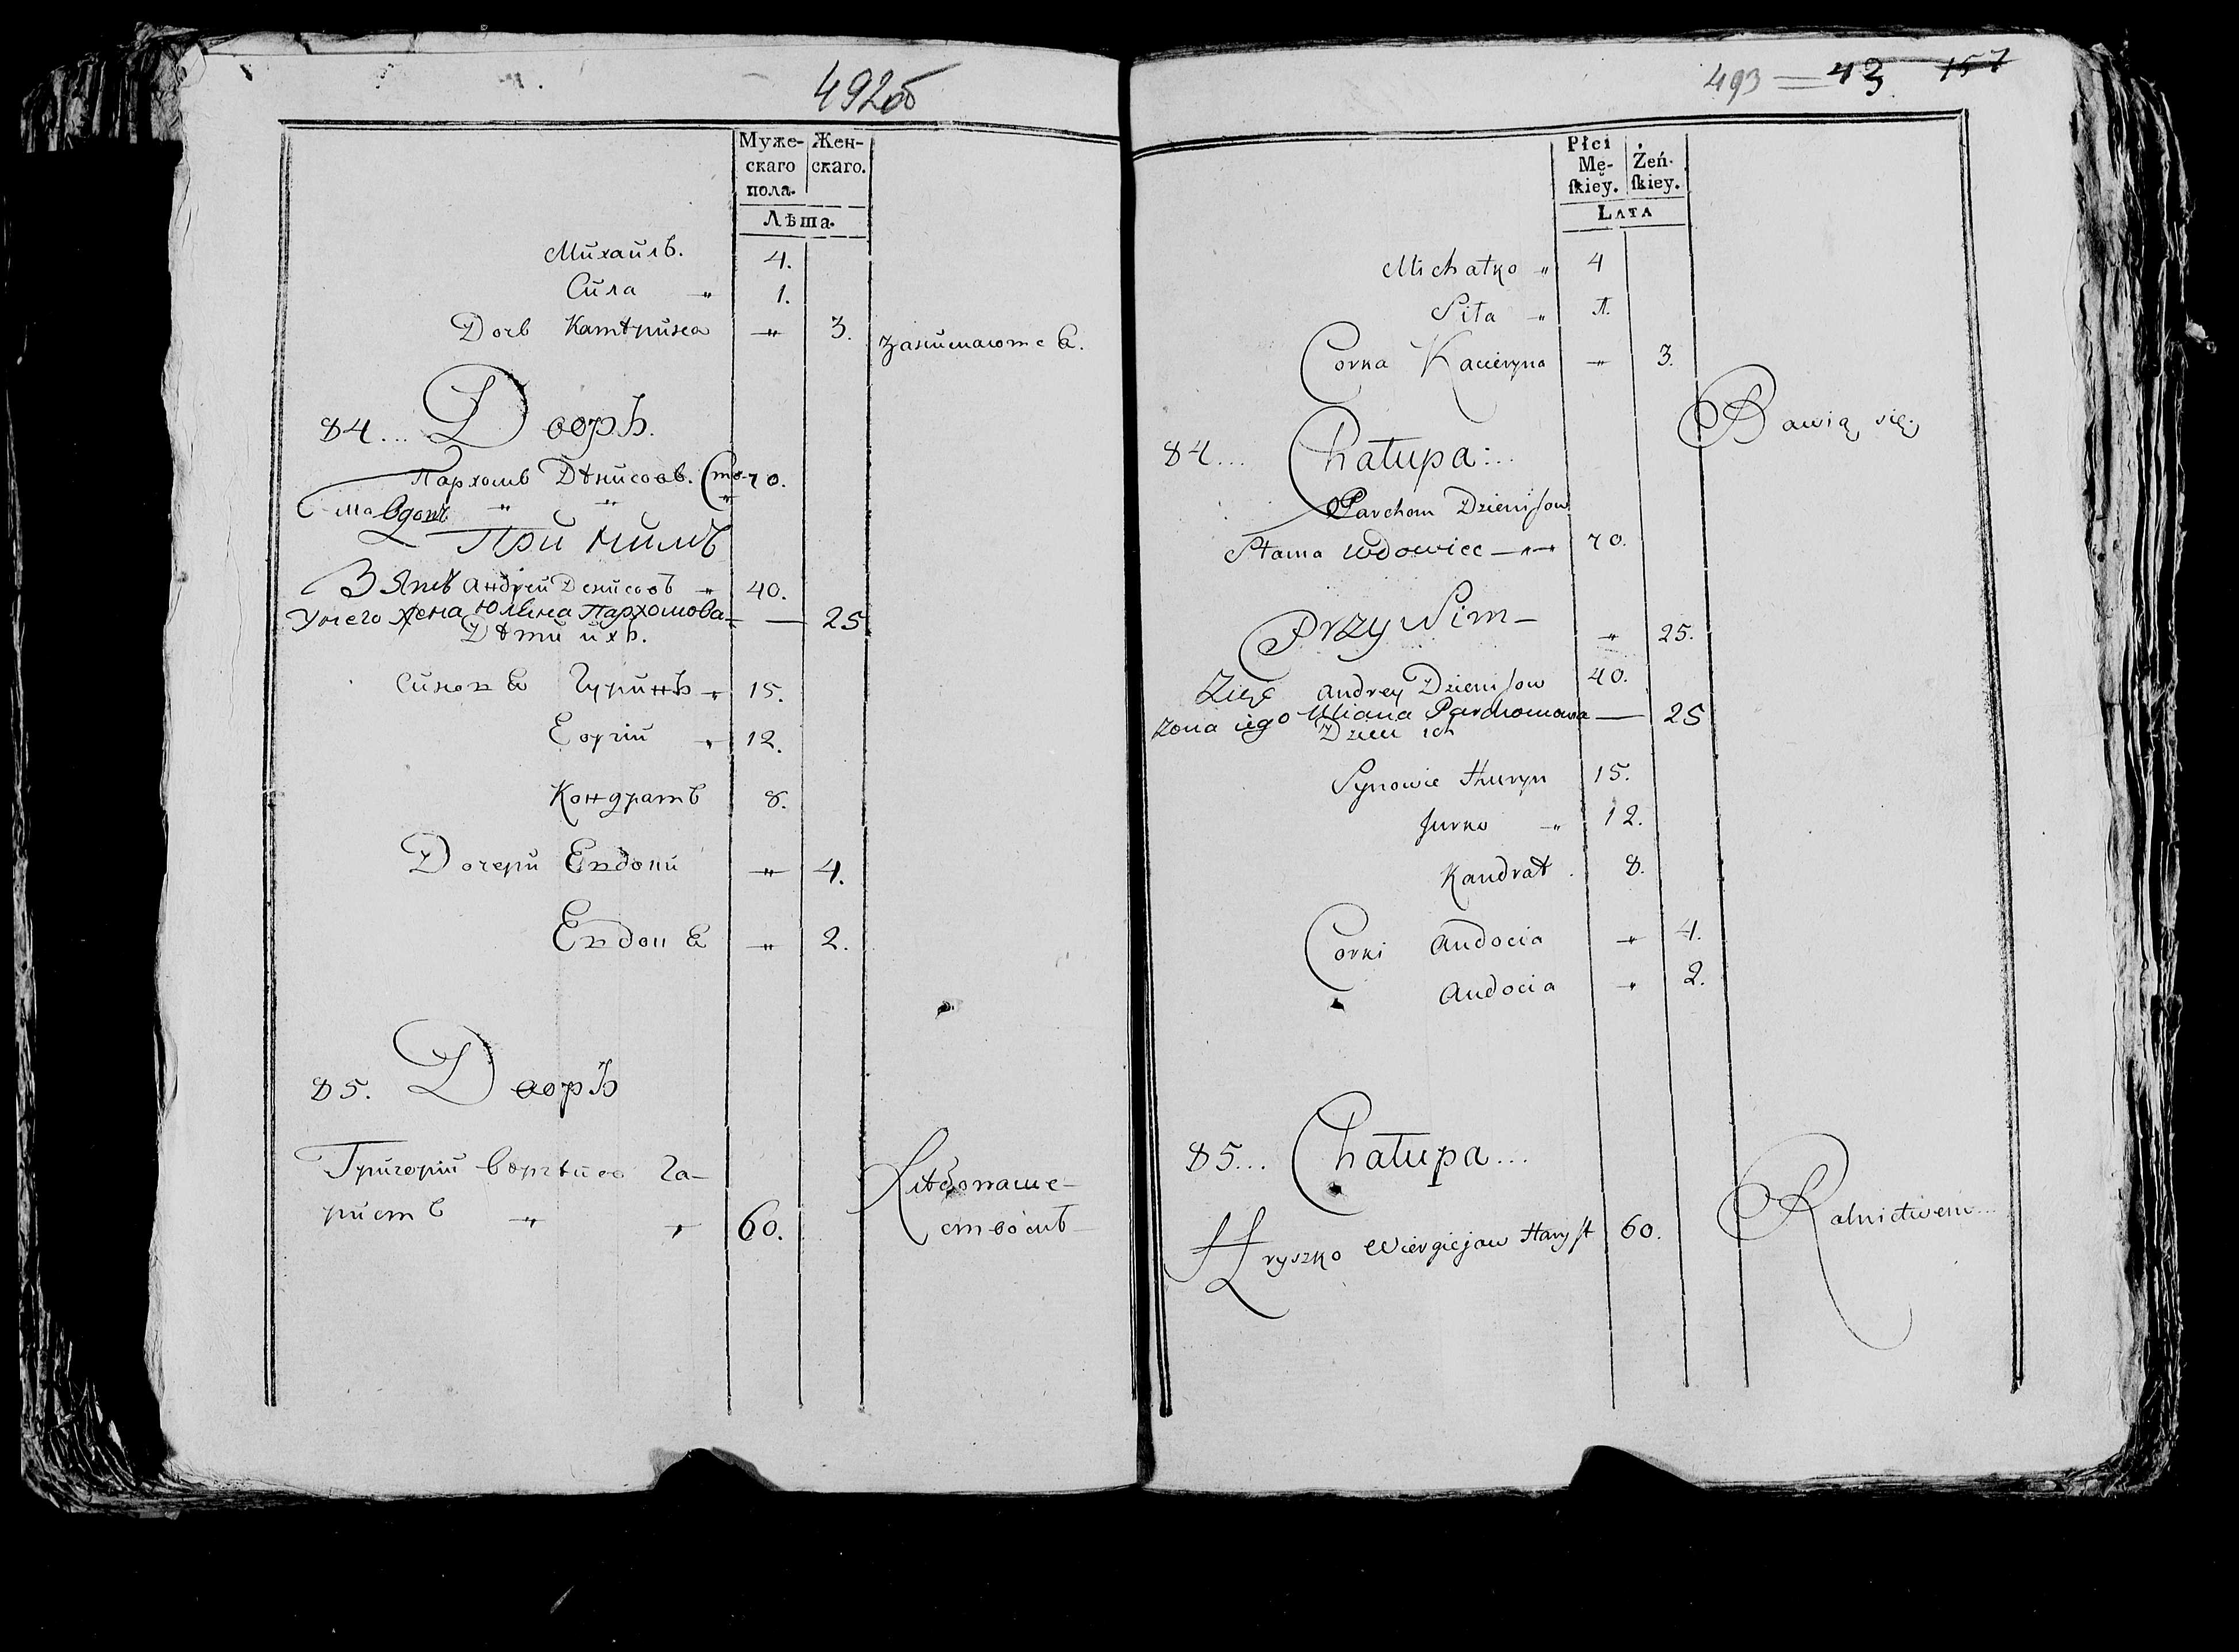 492об
Муже-
скаго
пола.
Жен-
скаго.
Лѣта.
Михайлъ. 4.
Сила " 1.
Дочь Катѣрина " 3. занимаютса.
84... Дворъ.
Пархомъ Дѣнисовъ. 70.
вдовъ " "
При нимъ
Зять Андрей Денисовъ " 40.
У него жена Юльяна Пархомова — 25
Дѣти ихъ.
Гуринъ " 15.
12.
Кондратъ 8.
Дочери " 4.
" 2.
85. Дворъ
Григорій Га-
ристъ " " 60.
Хлѣбопаше-
ствомъ
493 = 43 157
Płci
Mę-
skiey.
Żeń-
skiey.
Lata
Michałko " 4
Siła " 1.
Corka Kacieryna " 3.
Bawią się.
84... Chałupa:...
Parchom Dzienisow
Słama wdowiec — " 70.
Przy Nim — " 25.
Zięć Andrey Dzienisow 40.
Zona iego Uliana Parchomowa — 25
Dzieci ich
Synowie Huryn 15.
Jurko " 12.
Kandrat . 8.
Corki Audocia " 4.
Audocia " 2.
85... Chałupa...
Hryszko Wiergiejaw Haryst 60.
Rolnictwem...